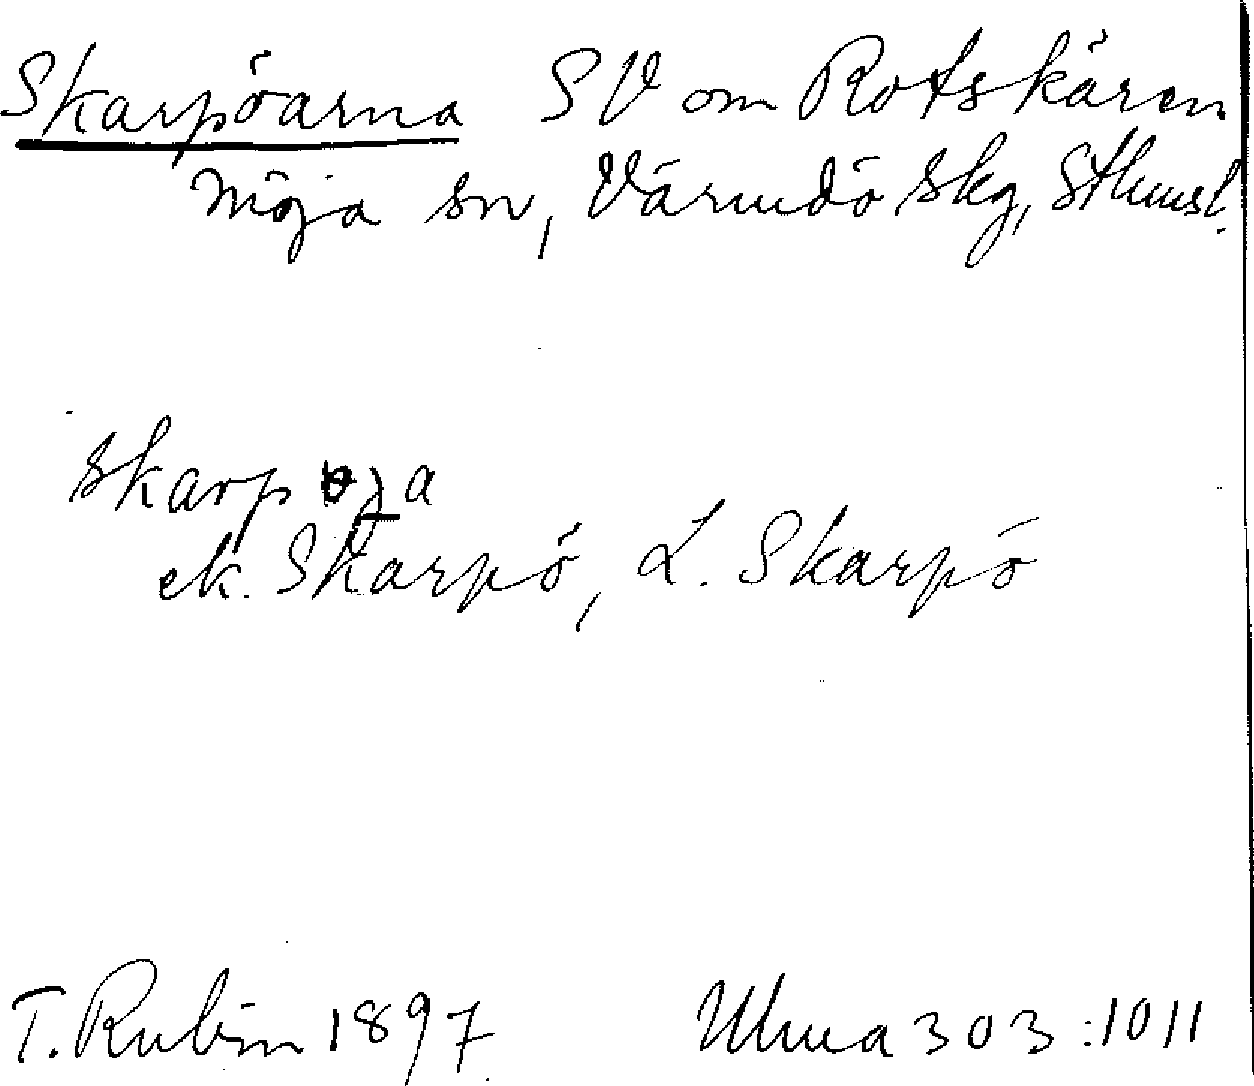 Skarpöarna SV om Rotskären
Möja sn, Värmdö skg, Sthmsl.
skarp a
ek. Skarpö, L. Skarpö
T. Rubin 1897 Ulma 303:1011